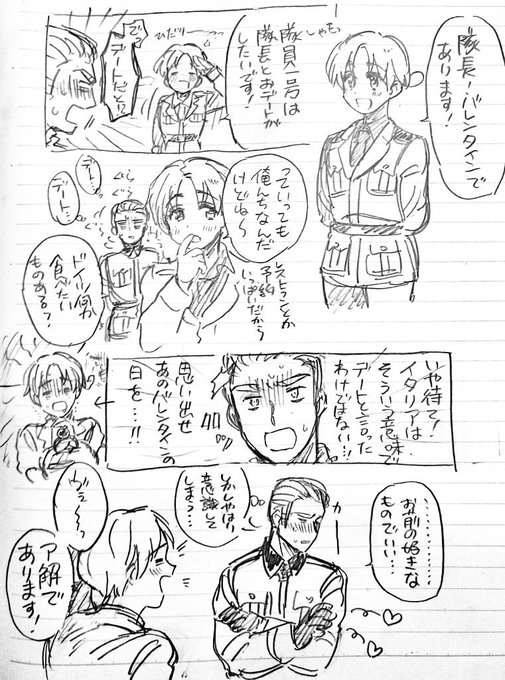 隊長!バレンタインで
あります!
しゃきっ
隊員一号は
隊長とおデートが
したいです!
でっ
デートだと!!
っていっても
俺んちなんだ
けどね〜
レストランとか
予約
いっぱいだから
デート…
デート…
ドイツ何か
食べたい
ものある?
いや待て!
イタリアは
そういう意味で
デートと言った
わけではない…!
思い出せ
あのバレンタインの
日を…!!
………お前の好きな
ものでいい…
しかしやはり
意識して
しまう…
カー
ヴェ〜〜っ
了解で
あります!